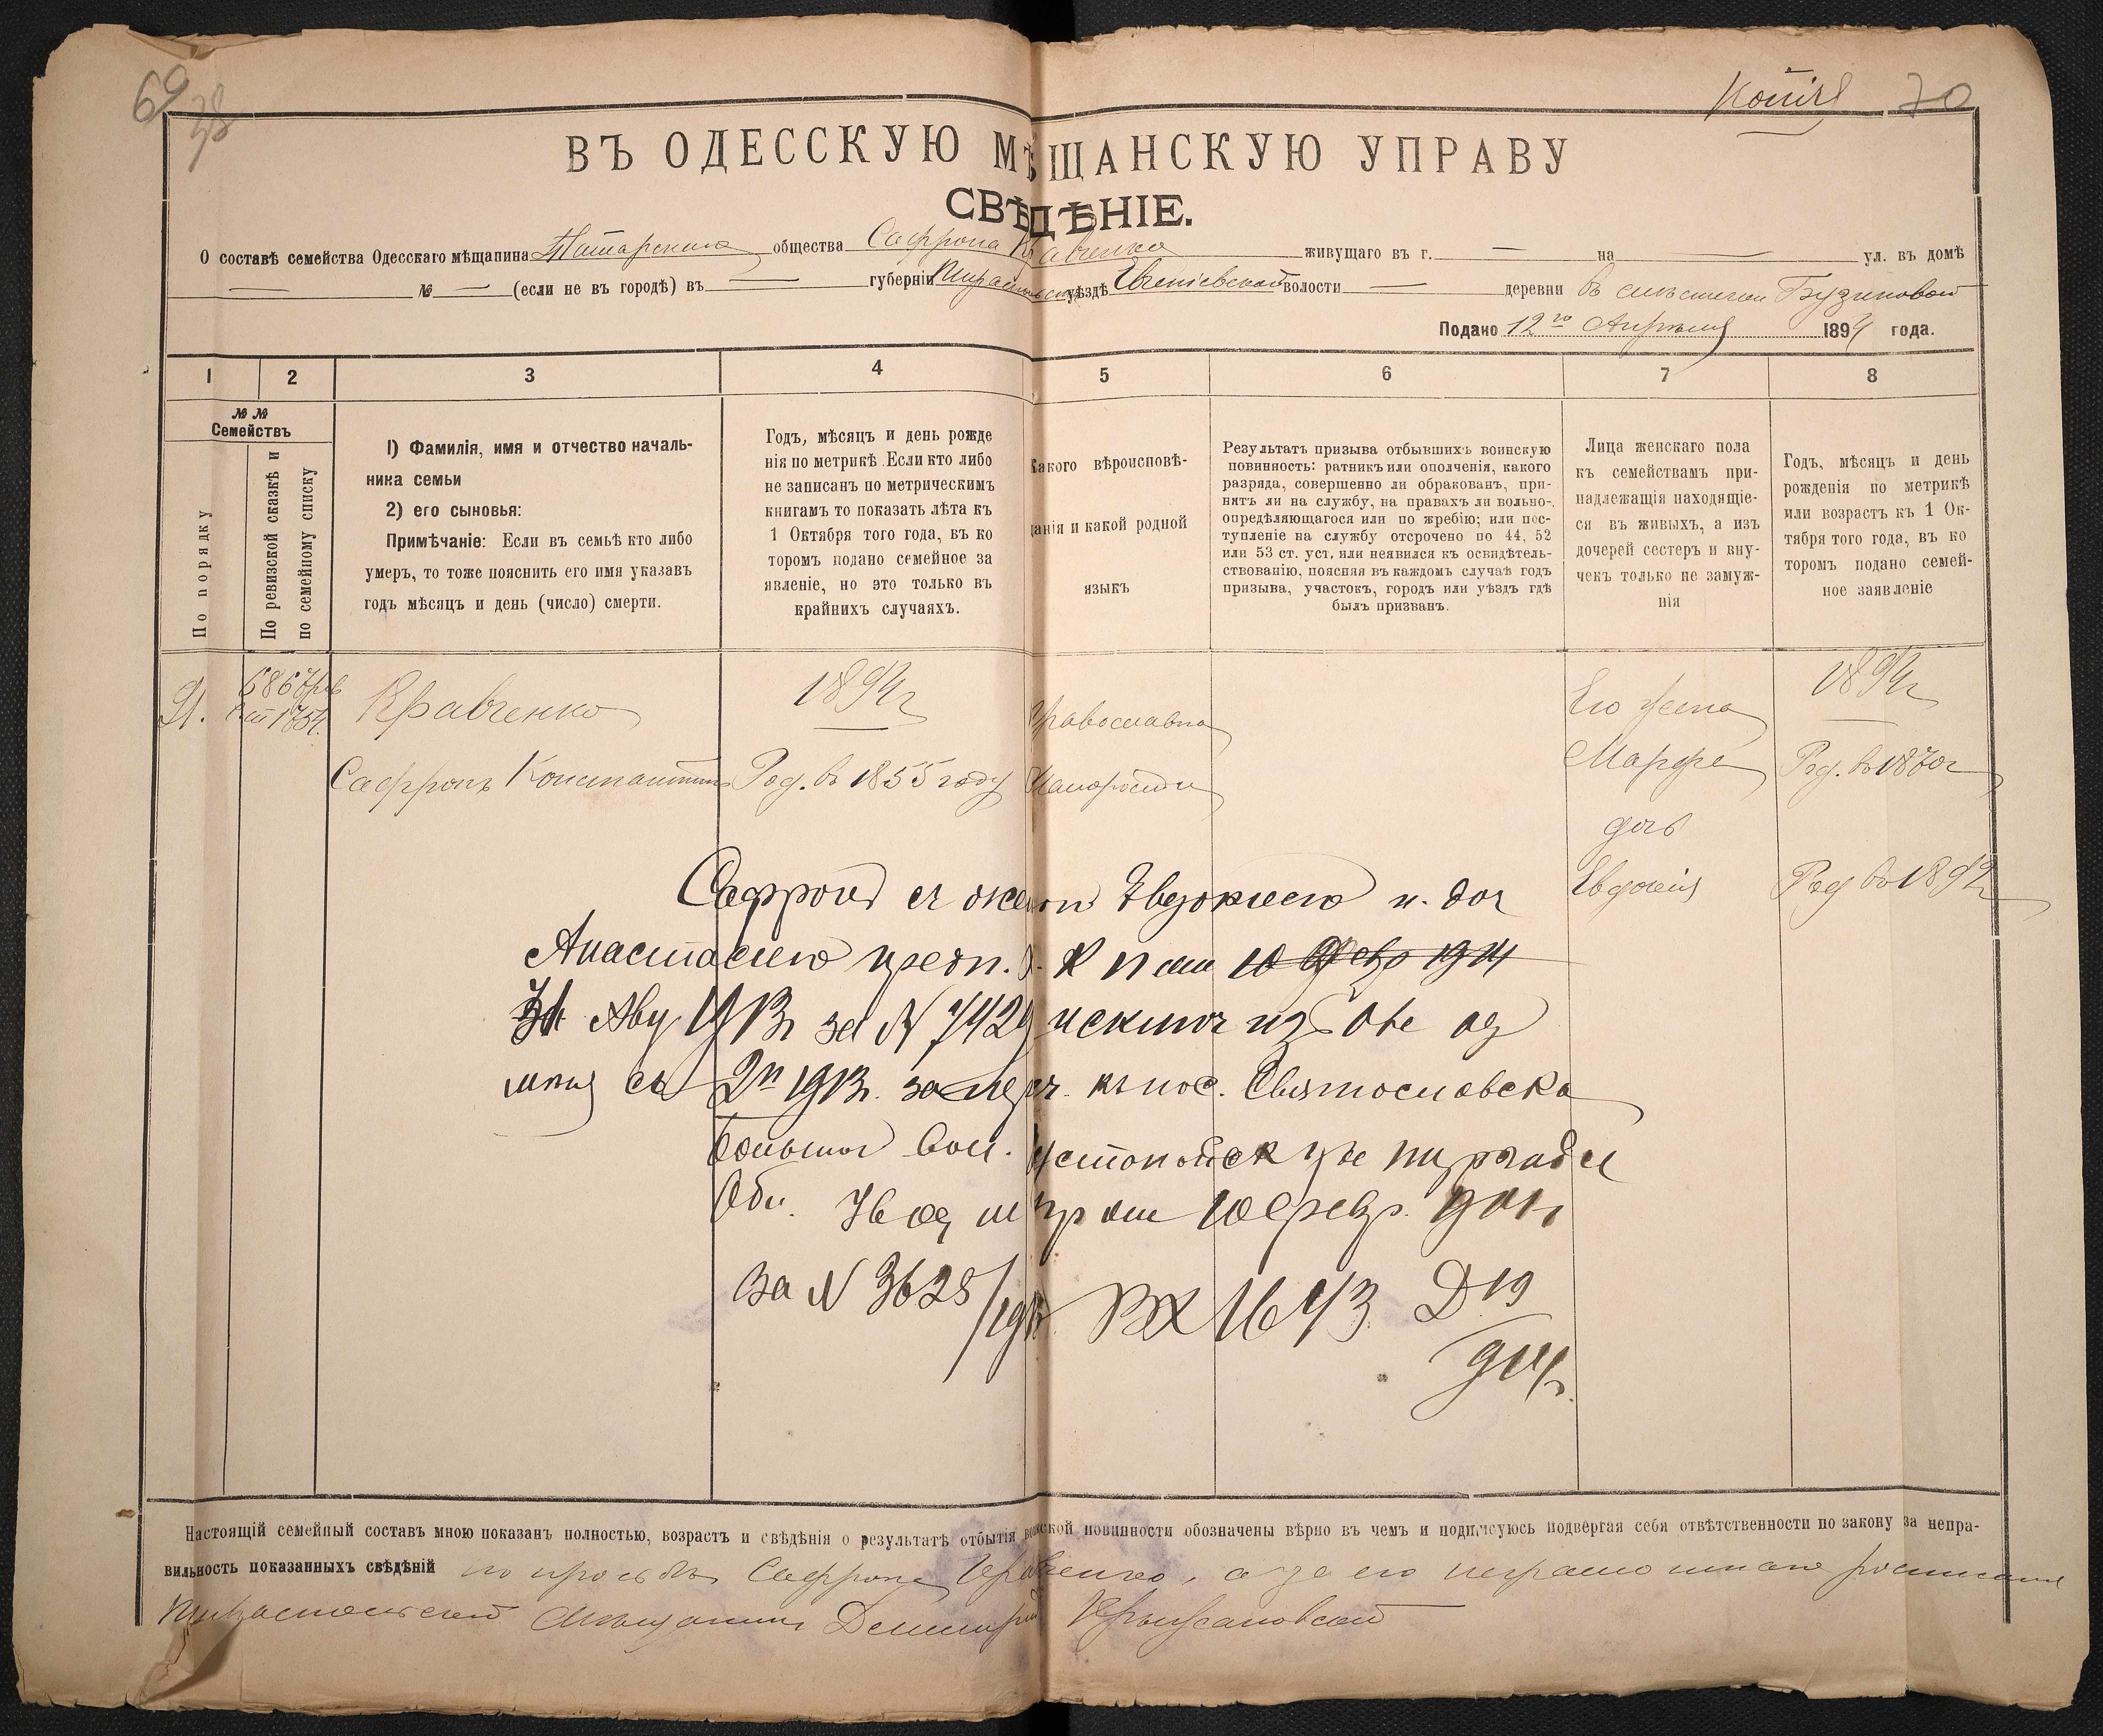 69
Копія 70
ВЪ ОДЕССКУЮ МѢЩАНСКУЮ УПРАВУ
СВѢДѢНІЕ.
О составѣ семейства Одесскаго мѣщанина Татарскаго общества Сафрона Кравченко живущаго въ г. — на — ул. въ домѣ
— № — (если не въ городѣ) въ — губерніи уѣздѣ волости — деревни въ Бузиновой
Подано 12го Апрѣля 1894 года.
1 2 3 4 5 6 7 8
№ №
Семействъ
По порядку
По ревизской сказкѣ и
по семейному списку
1) Фамилія, имя и отчество началь-
ника семьи
2) его сыновья:
Примѣчаніе: Если въ семьѣ кто либо
умеръ, то тоже пояснить его имя указавъ
годъ мѣсяцъ и день (число) смерти.
Годъ, мѣсяцъ и день рожде
нія по метрикѣ .Если кто либо
не записанъ по метрическимъ
книгамъ то показать лѣта къ
1 Октября того года, въ ко
торомъ подано семейное за
явленіе, но это только въ
крайнихъ случаяхъ.
Какого вѣроисповѣ-
данія и какой родной
языкъ
Результатъ призыва отбывшихъ воинскую
повинность: ратникъ или ополченія, какого
разряда, совершенно ли обракованъ, при-
нятъ ли на службу, на правахъ ли вольно-
опредѣляющагося или по жребію; или пос-
тупленіе на службу отсрочено по 44, 52
или 53 ст. уст. или неявился къ освидѣтель-
ствованію, поясняя въ каждомъ случаѣ годъ
призыва, участокъ, городъ или уѣздъ гдѣ
былъ призванъ.
Лица женскаго пола
къ семействамъ при-
надлежащія находящіе-
ся въ живыхъ, а изъ
дочерей сестеръ и вну-
чекъ только не замуж-
нія
Годъ, мѣсяцъ и день
рожденія по метрикѣ
или возрастъ къ 1 Ок-
тября того года, въ ко
торомъ подано семей-
ное заявленіе
Кравченко 1894г Православна Его жена 1894г
Сафронъ Константин Род. въ 1855 году Марфа Род. въ 1870г
дочь
Евдокія Род въ 1892
Сафронъ съ женою Евдокиею и доч
Анастасиею К 10 Февр 1914
31 Авгу 1913г за № 7429
2п 1913г. къ пос. Святославска
вол.
Обл. 10 февр. 914г
за № 3628/1913 ВХ 1643 Д 19
914г.
Настоящій семейный составъ мною показанъ полностью, возрастъ и свѣдѣнія о результатѣ отбытія воинской повинности обозначены вѣрно въ чемъ и подписуюсь подвергая себя отвѣтственности по закону за непра-
вильность показанныхъ свѣдѣній по просьбѣ Сафрона Кравченко, а за его неграмотного
Тираспольскій мѣщанинъ Димитрій Крыжановскій